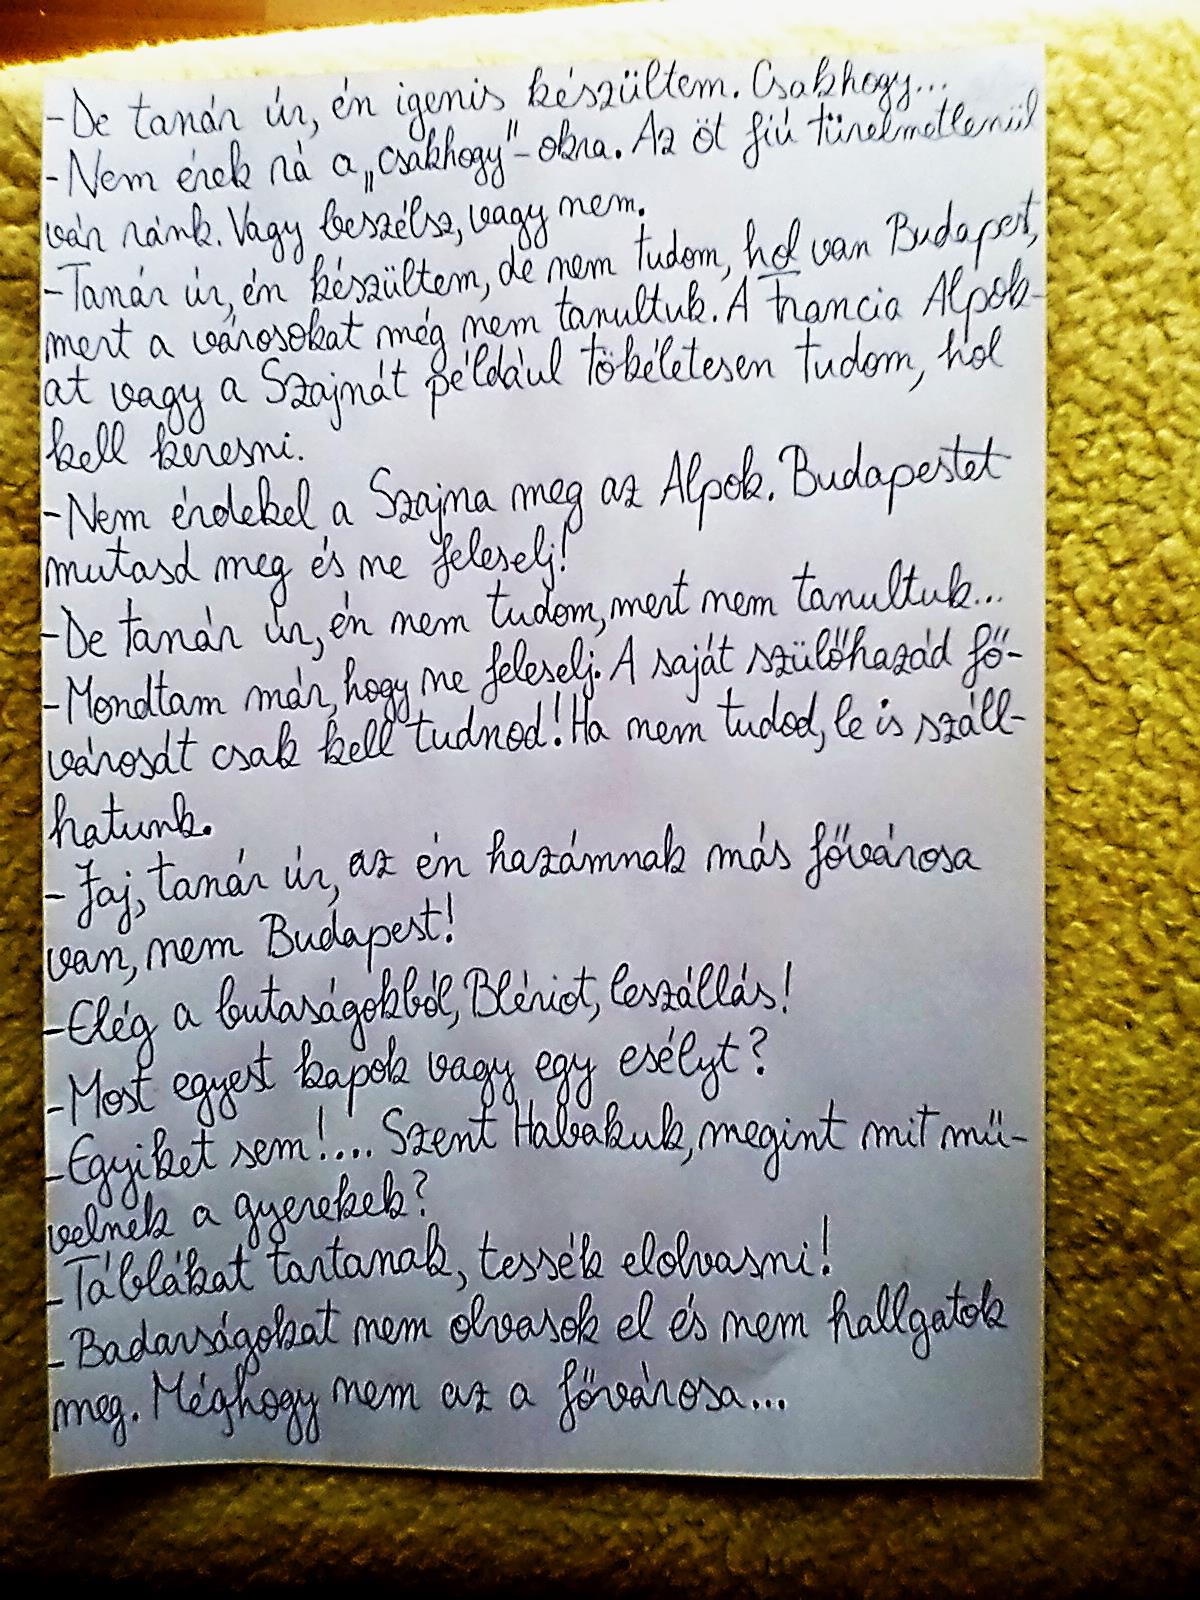 - De tanár úr, én igenis készültem. Csakhogy...
- Nem érek rá a „csakhogy"-okra. Az öt fiú türelmetlenül
vár ránk. Vagy beszélsz, vagy nem.
- Tanár úr, én készültem, de nem tudom, hol van Budapest,
mert a városokat még nem tanultuk. A Francia Alpok-
at vagy a Szajnát például tökéletesen tudom, hol
kell keresni.
- Nem érdekel a Szajna meg az Alpok. Budapestet
mutasd meg és ne feleselj!
- De tanár úr, én nem tudom, mert nem tanultuk...
- Mondtam már, hogy ne feleselj. A saját szülőhazád fő-
városát csak kell tudnod! Ha nem tudod, le is száll-
hatunk.
- Jaj, tanár úr, az én hazámnak más fővárosa
van, nem Budapest!
- Elég a butaságokból, Blériot, leszállás!
- Most egyest kapok vagy egy esélyt?
- Egyiket sem!... Szent Habakuk, megint mit mű-
velnek a gyerekek?
- Táblákat tartanak, tessék elolvasni!
- Badarságokat nem olvasok el és nem hallgatok
meg. Méghogy nem az a fővárosa...